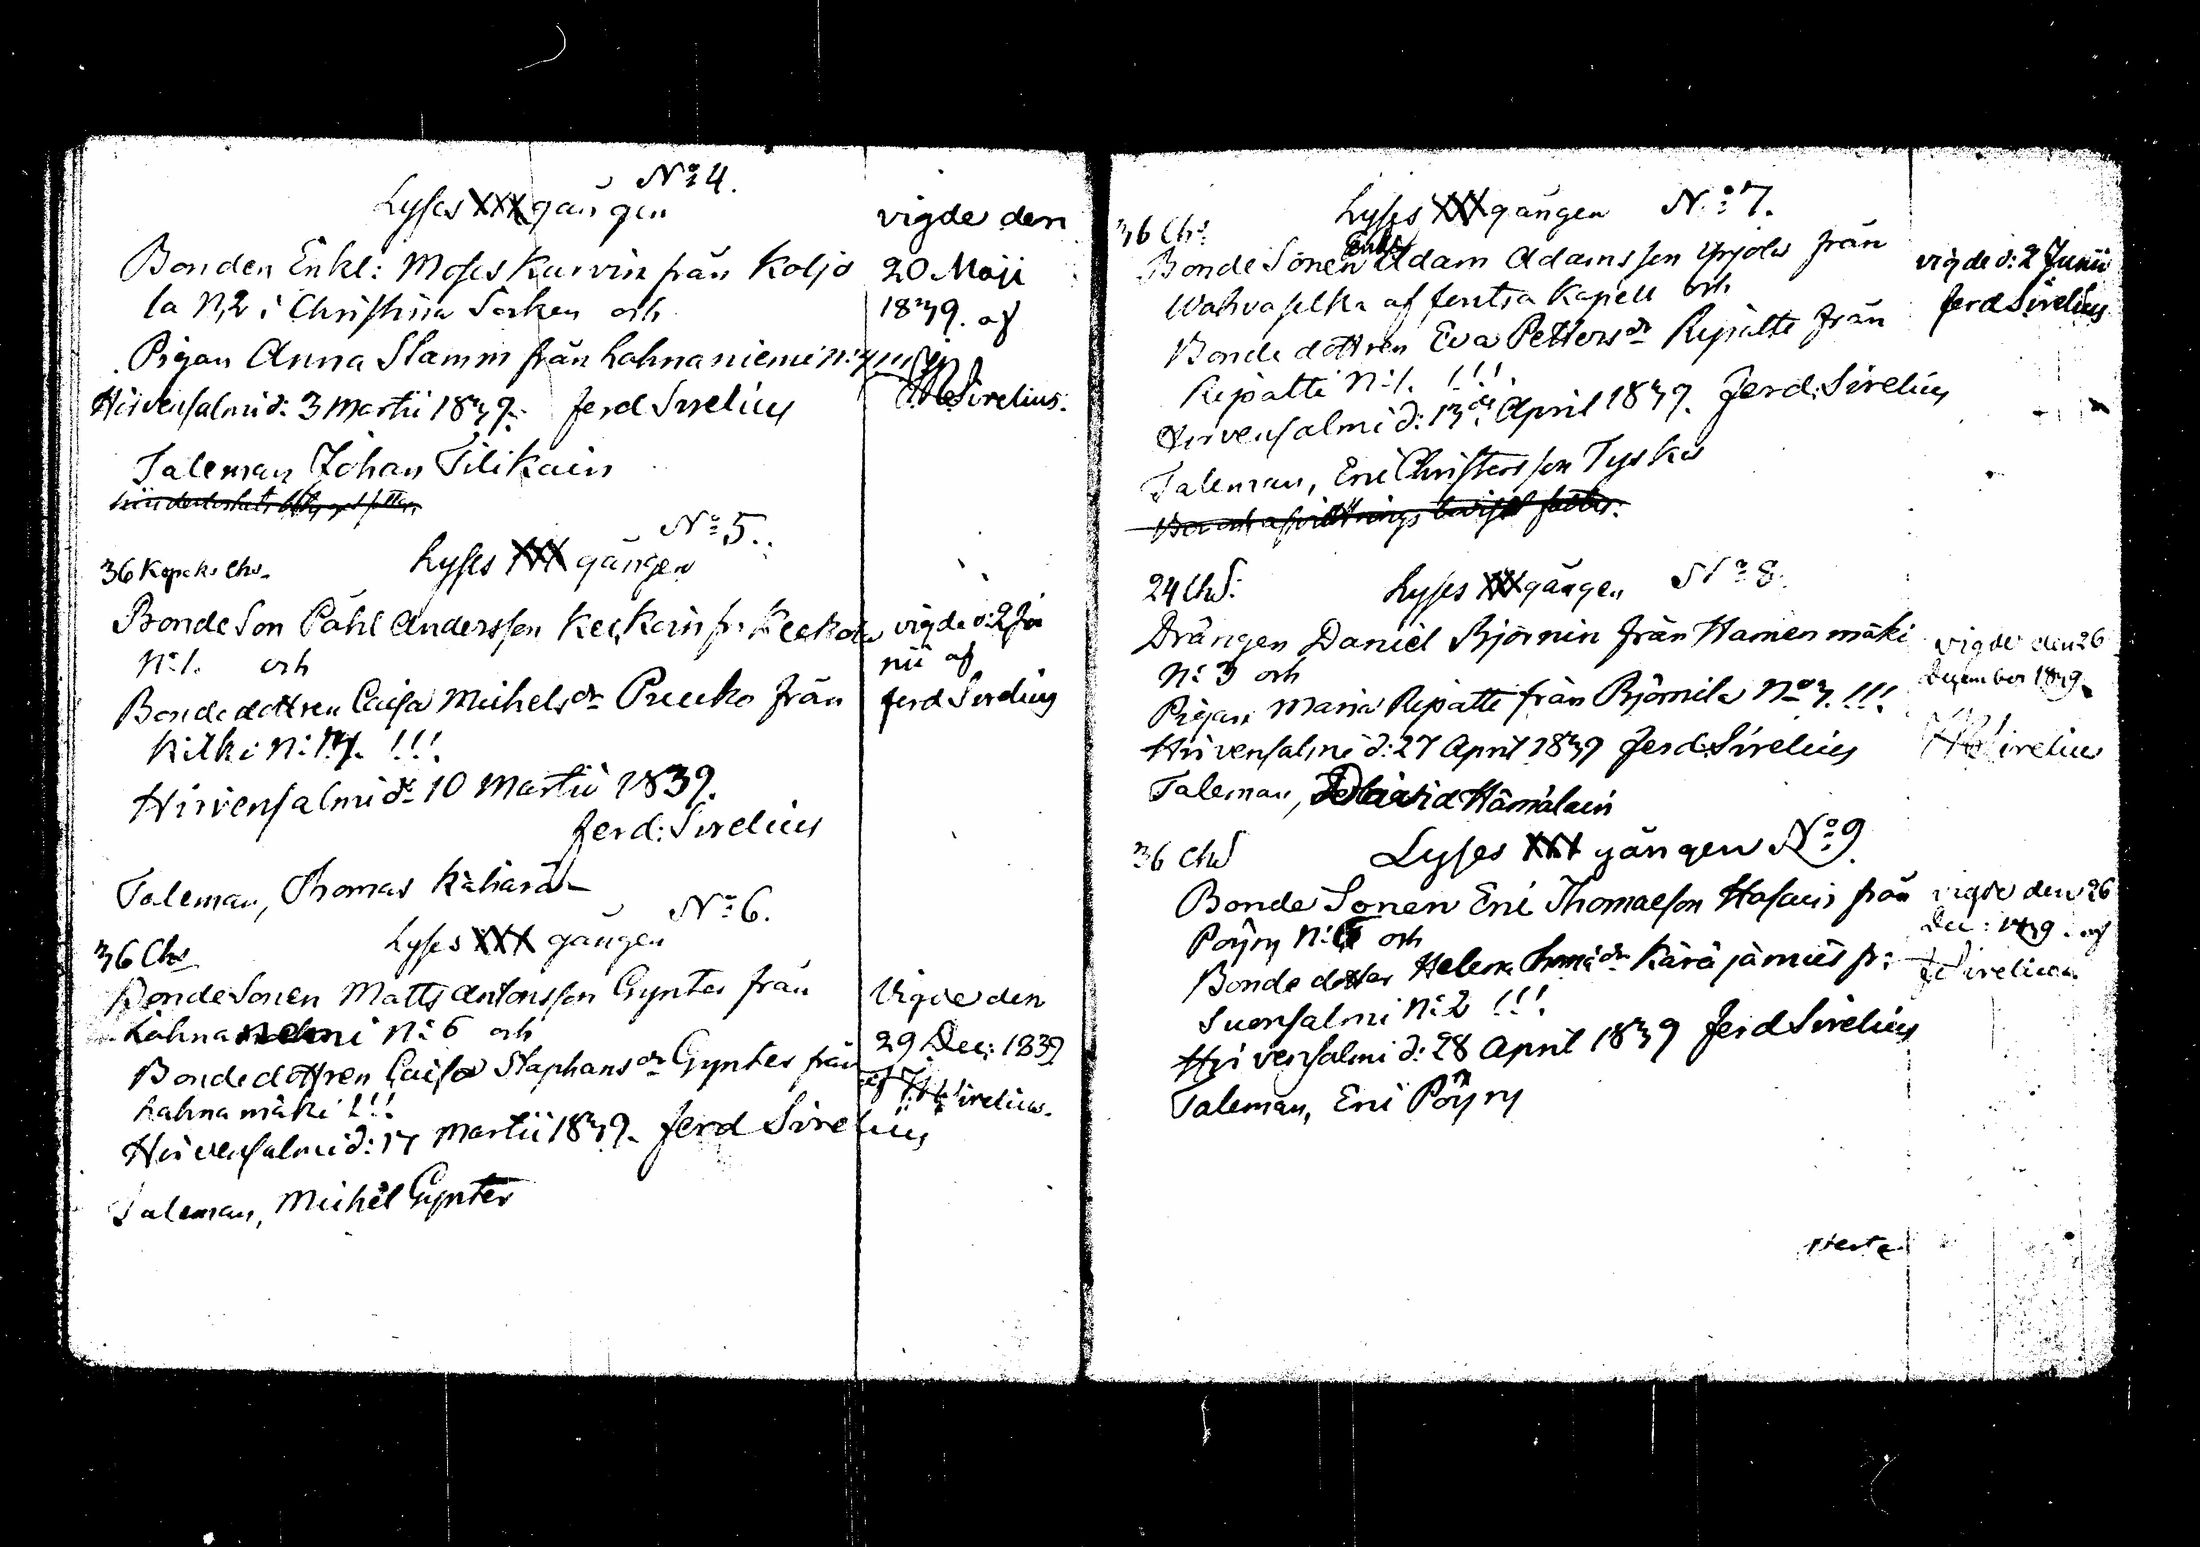 No 4.
Lyses XXX gången
Bonden Enkl: Moses Kurvin från Koljo
la N2 i Christina Socken och
Pigan Anna Stamm från Lahnaniemi N:4 !!!
Hirvensalmi d: 3 Martii 1839. Ferd Sirelius
Taleman Johan Tilikain
vigde den
20 Maji
1839. af
Sirelius.
No 5.
36 Kopeks Chs.
Lyses XXX gången
Bonde Son Påhl Andersson Keskein fr:
N:1. och
Bondedottren Caisa Michelsdr Pruuko från
Kilki N: !!!
Hirvensalmi d: 10 Martii 1839.
Ferd: Sirelius
Taleman, Thomas Kähärä
vigde d: 2 Ju
nii af
Ferd Sirelius
No 6.
36 Chs
Lyses XXX gången
BondeSonen Matts Antonsson Gynter från
Lahnaniemi N:6 och
Bondedottren Caisa Staphansdr Gynter från
Lahnamäki !!!
Hirvensalmi d: 17 Martii 1839. Ferd Sirelius
Taleman, Michel Gynter
Vigde den
29 Dec: 1839
af Sirelius.
No 7.
36 Chs
Lyses XXX gången
BondeSonen Enkl: Adam Adamsson Yrjölä från
Wahvaselkä af Jentsa Kapell och
Bondedottren Eva Pettersdr Ripatti från
Ripatti N:1. !!!
Hirvensalmi d: 13de April 1839. Ferd: Sirelius
Taleman, Eric Christersson Tyskes
vigde d: 2 Junii
Ferd Sirelius
No 8.
24 Chs:
Lyses XXX gången
Drängen Daniel Björnin från Hamenmäki
N:3 och
Pigan Maria Ripatti från Björnilä No 3. !!!
Hirvensalmi d: 27 April 1839 Ferd: Sirelius
Taleman, Hämäläin
vigde den 26
December 1839.
Sirelius
36 Chs
Lyses XXX gången No 9.
Bonde Sonen Eric Thomasson Hasain från
Pöyry N:6 och
Bonde dotter Helena Thomadr Käräjämies fr:
Suonsalmi N:2 !!!
Hirvensalmi d: 28 April 1839 Ferd Sirelius
Taleman, Eric Pöyry
vigde den 26
Dec: 1839. af
Sirelius